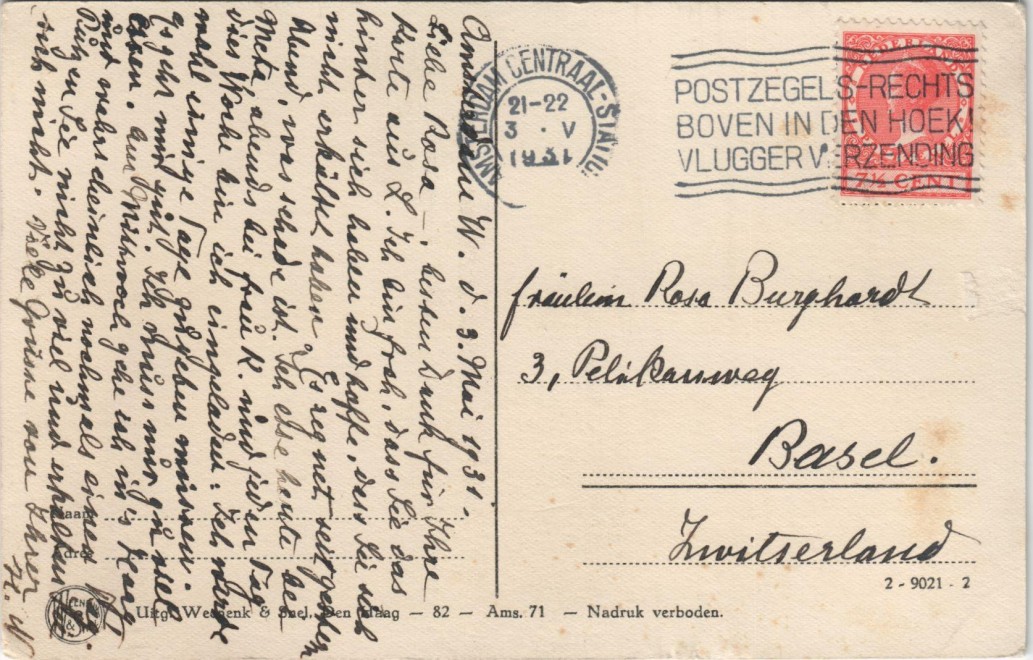 Amsterdam W. d. 3. Mai 1931.
Liebe Rosa –, besten Dank für Ihre
Karte aus L. Ich bin froh, dass Sie das
hinter sich haben und hoffe, dass Sie sich
nicht erkältet haben. Es regnet seit gestern
Abend, was schade ist. Ich esse heute bei
Meta, abends bei Frau K. und jeden Tag
dies Woche bin ich eingeladen. Ich werde
wohl einige Tage zugeben müssen.
Es geht mir gut. Ich muss nur zu viel
essen. Am Mittwoch gehe ich in's Haag
und wahrscheinlich nochmals einen Tag.
Sie nicht zu viel und erkälten Sie
sich nicht. Viele Grüsse von Ihrer
H. N
AMSTERDAM CENTRAAL-STATION
21-22
3 . V
1931
POSTZEGELS-RECHTS
BOVEN IN DEN HOEK!
VLUGGER VERZENDING
NEDERLAND
7½ CENT
Fräulein Rosa Burghardt
3, Pelikanweg
Basel.
Zwitserland
Naam
Adres
2 - 9021 - 2
Uitg. Weenenk & Snel, Den Haag — 82 — Ams. 71 — Nadruk verboden.